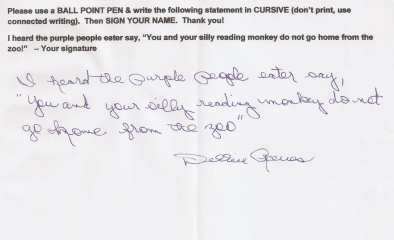 Please use a BALL POINT PEN & write the following statement in CURSIVE (don't print, use
connected writing). Then SIGN YOUR NAME. Thank you!
I heard the purple people eater say, "You and your silly reading monkey do not go home from the
zoo!" – Your signature
I heard the purple people eater say,
"You and your silly reading monkey do not
go home from the zoo"